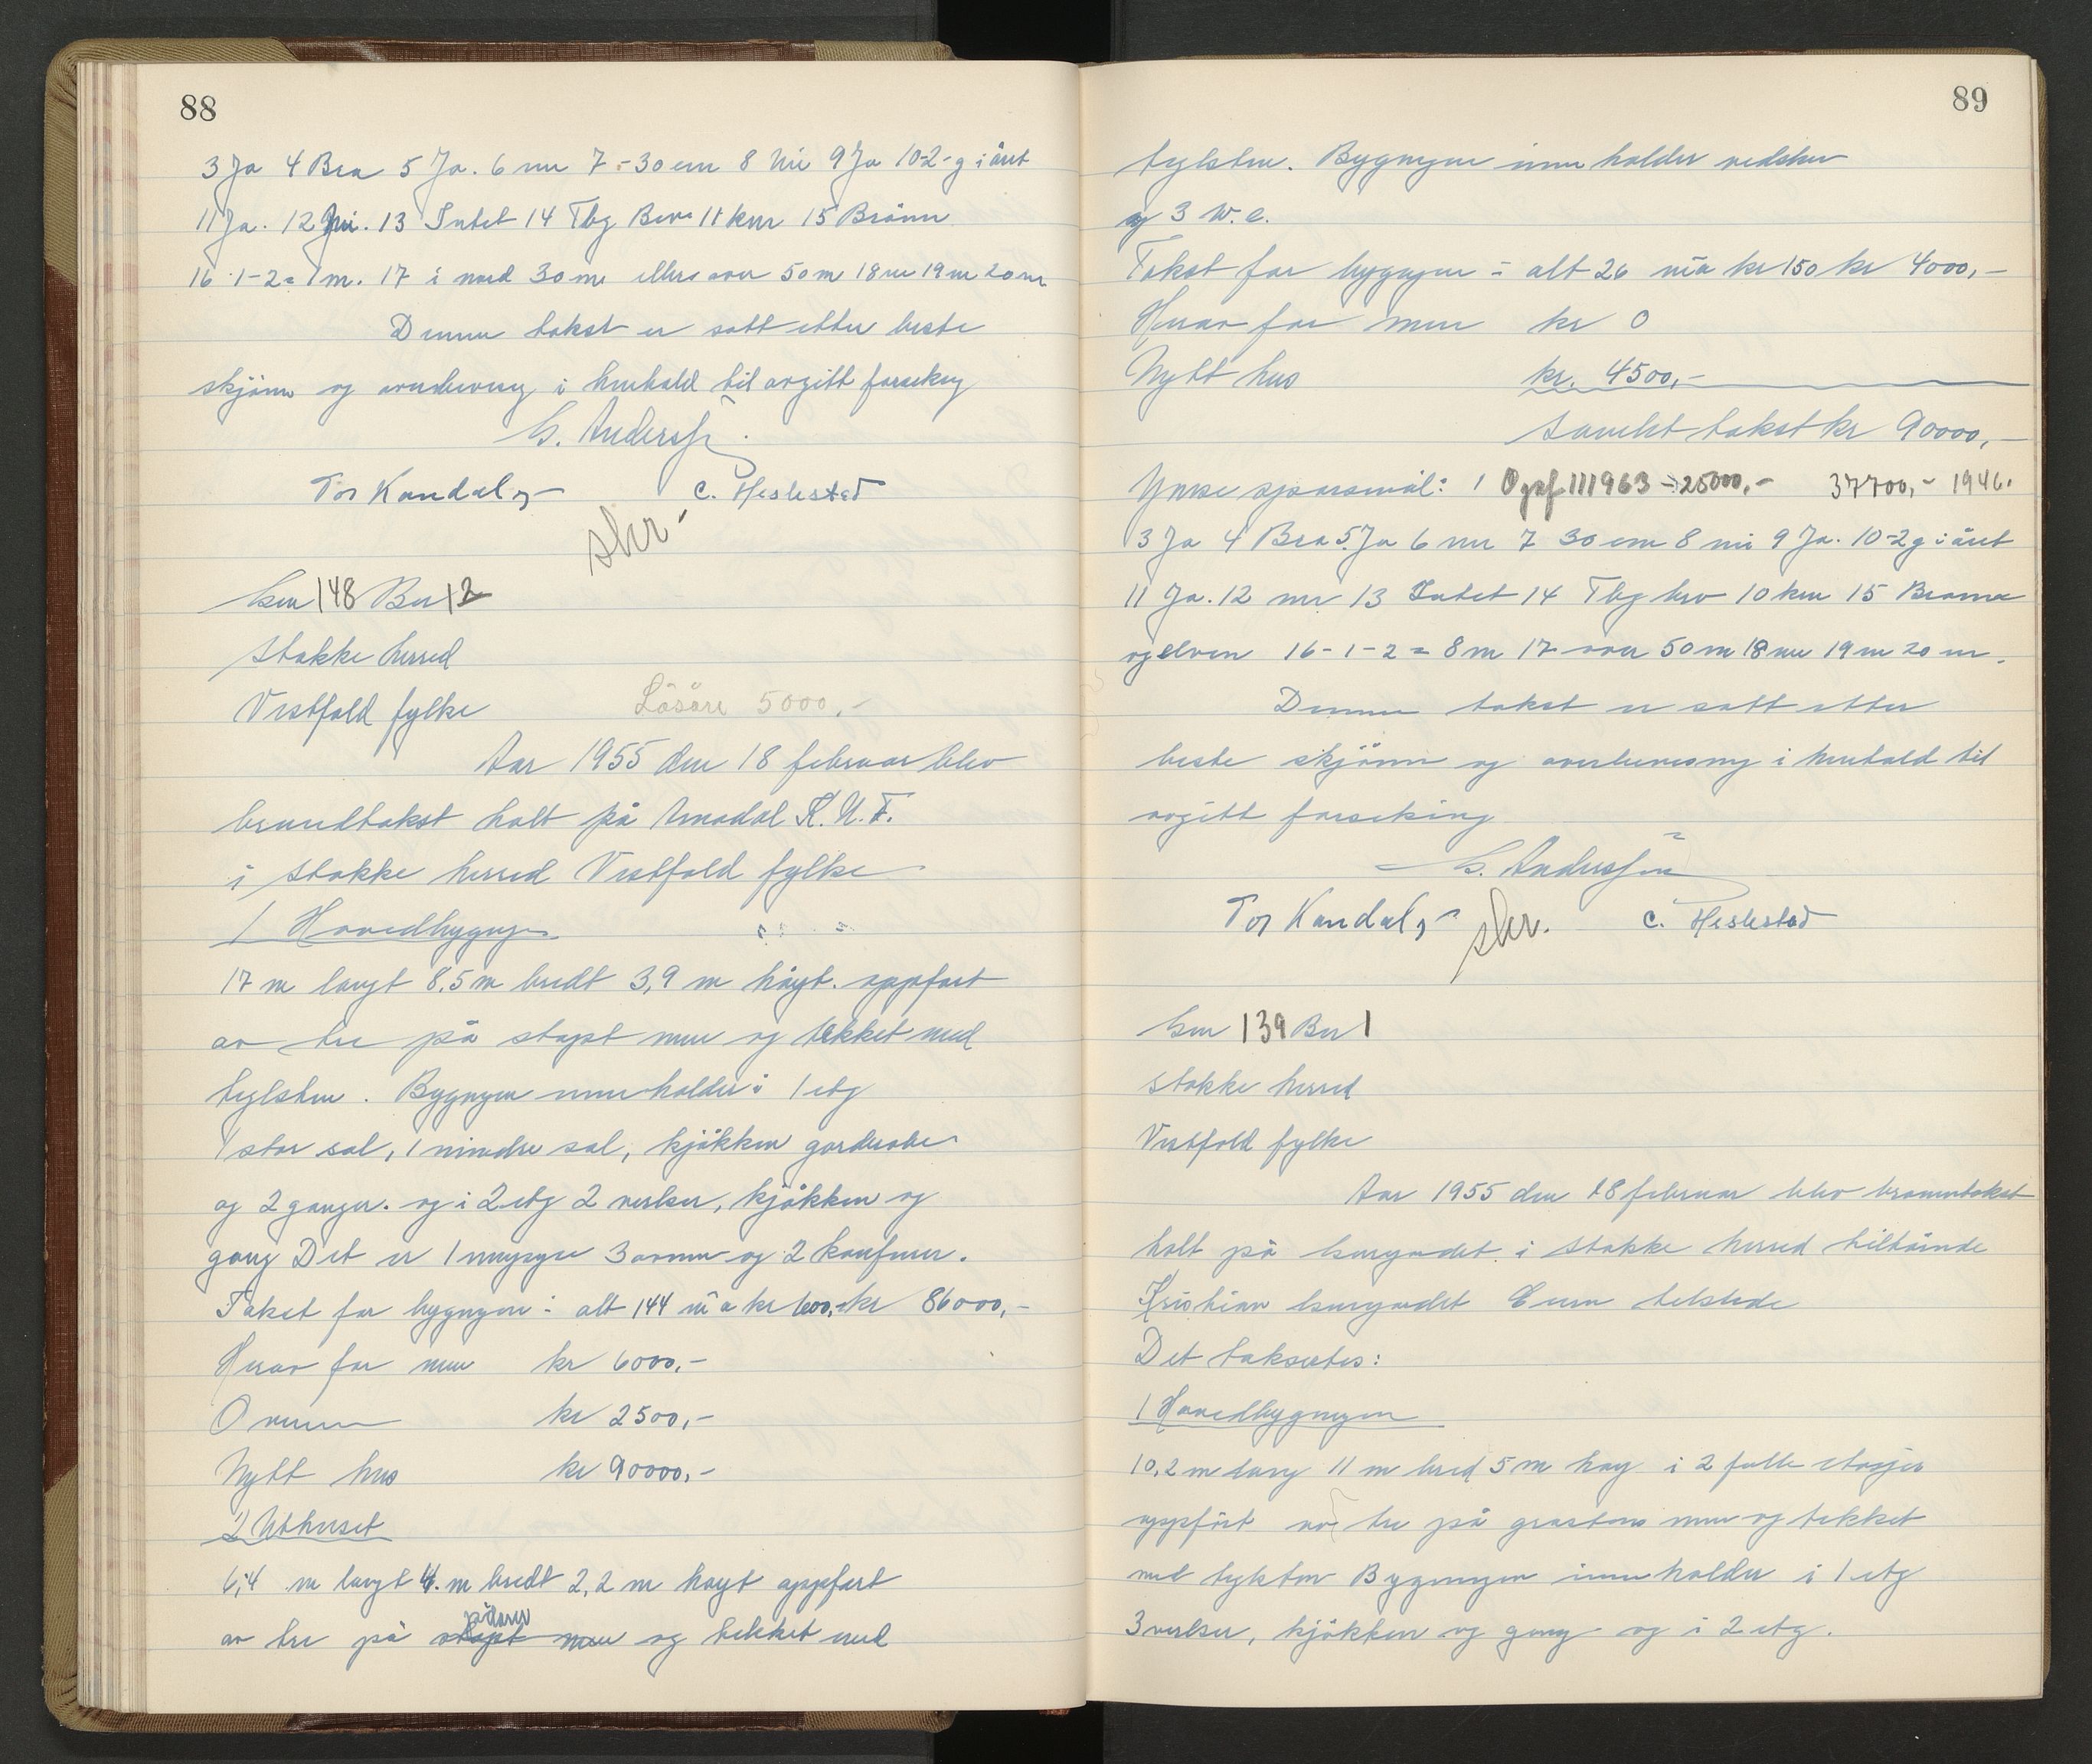 88
3 Ja 4 Bra 5 Ja. 6 nei 7 - 30 cm 8 Nei 9 Ja 10-2-g i året
11 Ja. 12 Nei. 13 Intet 14 Tbg Brv 11 km 15 Brönn
16 1-2 = 1 m. 17 i nord 30 m ellers over 50 m 18 nei 19 nei 20 nei
Denne takst er satt etter beste
skjönn og overbevisning i henhold til avgitt forsikring
G. Anderssen
Tor Kandal C. Heslestad
skr.
Gnr 148 Bnr 12
Stokke herred
Vestfold fylke
Lösöre 5000,-
Aar 1955 den 18 februar blev
branntakst holt på Arnadal K.U.F.
i Stokke herred Vestfold fylke
1 Hovedbygningen
17 m langt 8,5 m bredt 3,9 m høyt. oppført
av tre på støpt mur og tekket med
teglsten. Bygningen inneholder i 1 etg
1 stor sal, 1 mindre sal, kjökken garderobe
og 2 ganger. og i 2 etg 2 verelser, kjökken og
gang Det er 1 murpipe 3 ovner og 2 komfyrer.
Takst for bygningen i alt 144 m² a kr 600,- kr 86000,-
Herav for mur kr 6000,-
Ovnene kr 2500,-
Nytt hus kr 90000,-
2 Uthuset
6,4 m langt 4. m bredt 2,2 m høyt oppført
pilarer
av tre på støpt mur og tekket med
89
teglsten. Bygningen inneholder vedskur
og 3 W.C.
Takst for bygningen i alt 26 m² a kr 150 kr 4000,-
Herav for mur kr 0
Nytt hus kr. 4500,-
Samlet takst kr 90000,-
Ymse spørsmål: 1 Opsf 111963 - 25000,- 37700,- 1946.
3 Ja 4 Bra 5 Ja 6 nei 7 30 cm 8 nei 9 Ja. 10-2 g i året
11 Ja. 12 nei 13 Intet 14 Tbg brv 10 km 15 Brönn
og elven 16-1-2 = 8 m 17 over 50 m 18 nei 19 nei 20 nei.
Denne takst er satt etter
beste skjönn og overbevisning i henhold til
avgitt forsikring
G. Anderssen
Tor Kandal skr. C. Heslestad
Gnr 139 Bnr 1
Stokke herred
Vestfold fylke
Aar 1955 den 18 februar blev branntakst
holt på i Stokke herred tilhörende
Kristian Eieren tilstede
Det taksertes:
1 Hovedbygningen
10,2 m lang 11 m bred 5 m høy i 2 fulle etasjer
oppført av tre på gråstens mur og tekket
med teglsten Bygningen inneholder i 1 etg
3 verelser, kjökken og gang og i 2 etg.